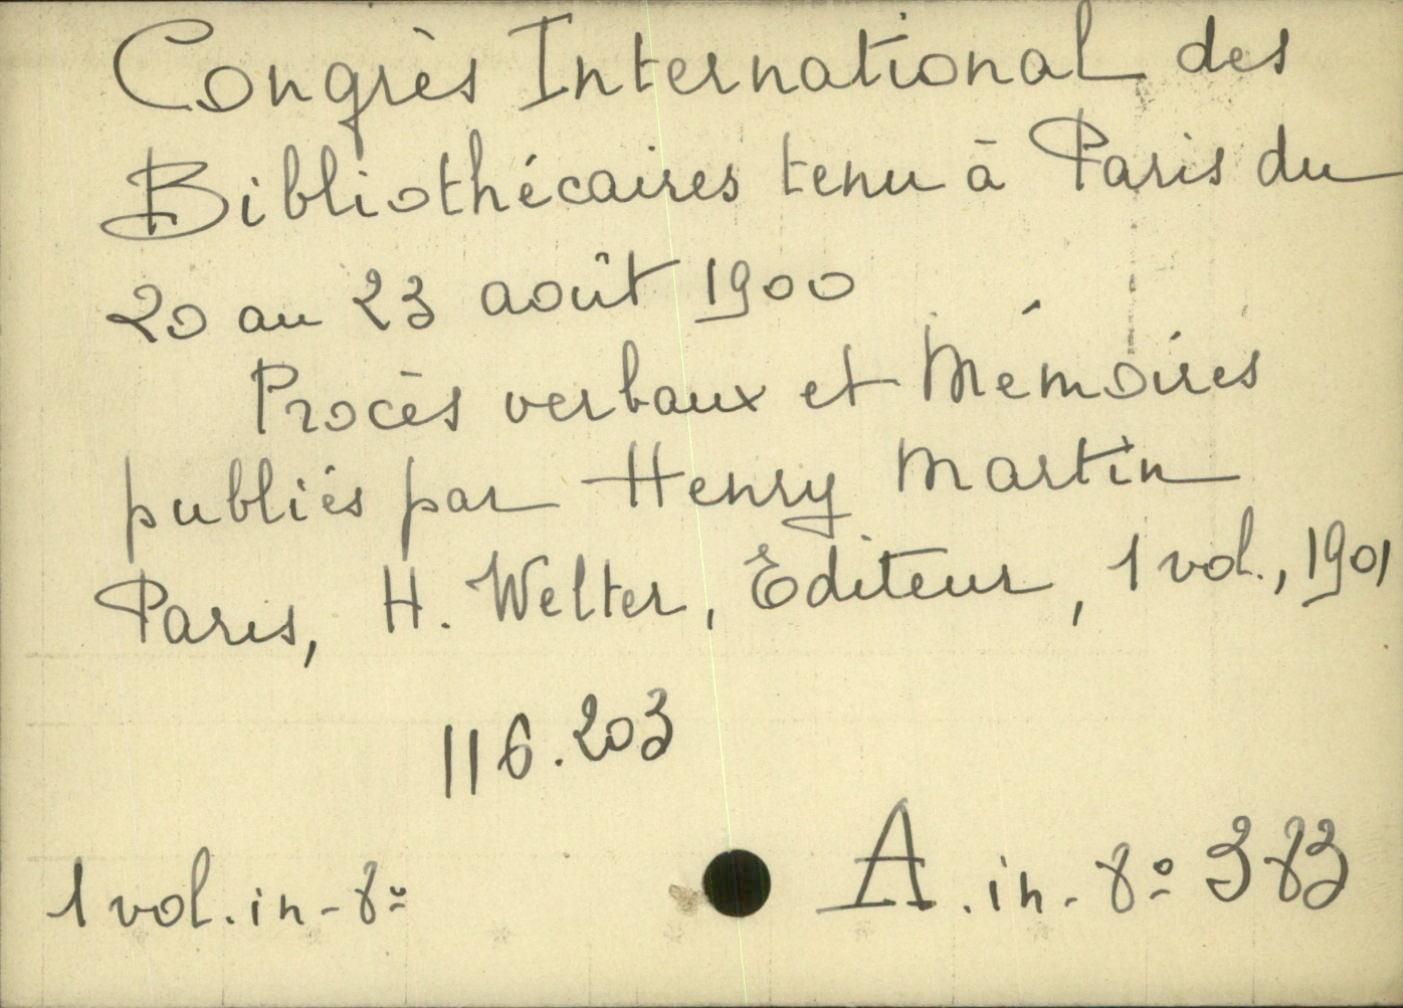 Congrès International des
Bibliothécaires tenu à Paris du
20 au 23 août 1900
Procès verbaux et Mémoires
publiés par Henry Martin
Paris, H. Welter, Editeur, 1 vol., 1901
116.203
1 vol. in-8º A. in-8º 383